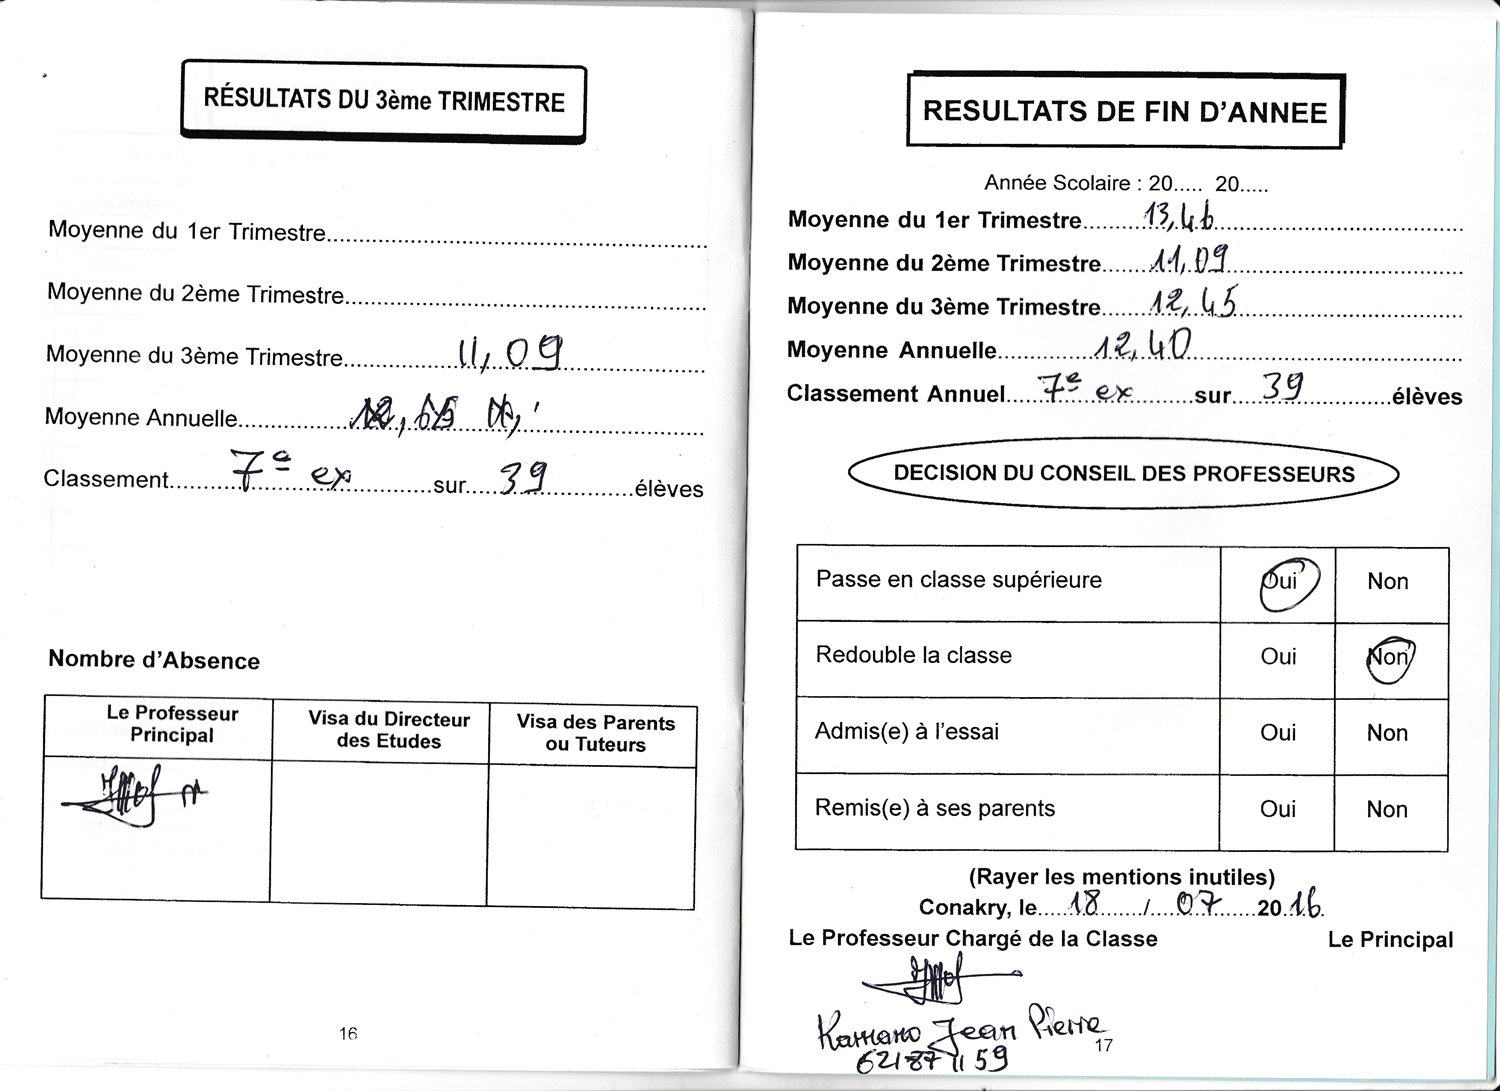 RÉSULTATS DU 3ème TRIMESTRE
Moyenne du 1er Trimestre
Moyenne du 2ème Trimestre
Moyenne du 3ème Trimestre 11,09
Moyenne Annuelle
Classement 7e ex sur 39 élèves
Nombre d'Absence
Le Professeur Principal
Visa du Directeur des Etudes
Visa des Parents ou Tuteurs
16
RESULTATS DE FIN D'ANNEE
Année Scolaire : 20..... 20.....
Moyenne du 1er Trimestre 13,46
Moyenne du 2ème Trimestre 11,09
Moyenne du 3ème Trimestre 12,45
Moyenne Annuelle 12,40
Classement Annuel 7e ex sur 39 élèves
DECISION DU CONSEIL DES PROFESSEURS
Passe en classe supérieure Oui Non
Redouble la classe Oui Non
Admis(e) à l'essai Oui Non
Remis(e) à ses parents Oui Non
(Rayer les mentions inutiles)
Conakry, le 18 / 07 2016
Le Professeur Chargé de la Classe Le Principal
Kamano Jean Pierre
621 87 11 59
17